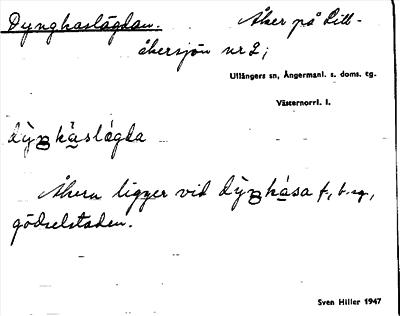 Dynghaslägdan. Åker på Lill-
åkersjön nr 2;
Ullångers sn, Ångermanl. s. doms. tg.
Västernorrl. l.
Åkern ligger vid f., b. sg.,
gödselstaden.
Sven Hiller 1947